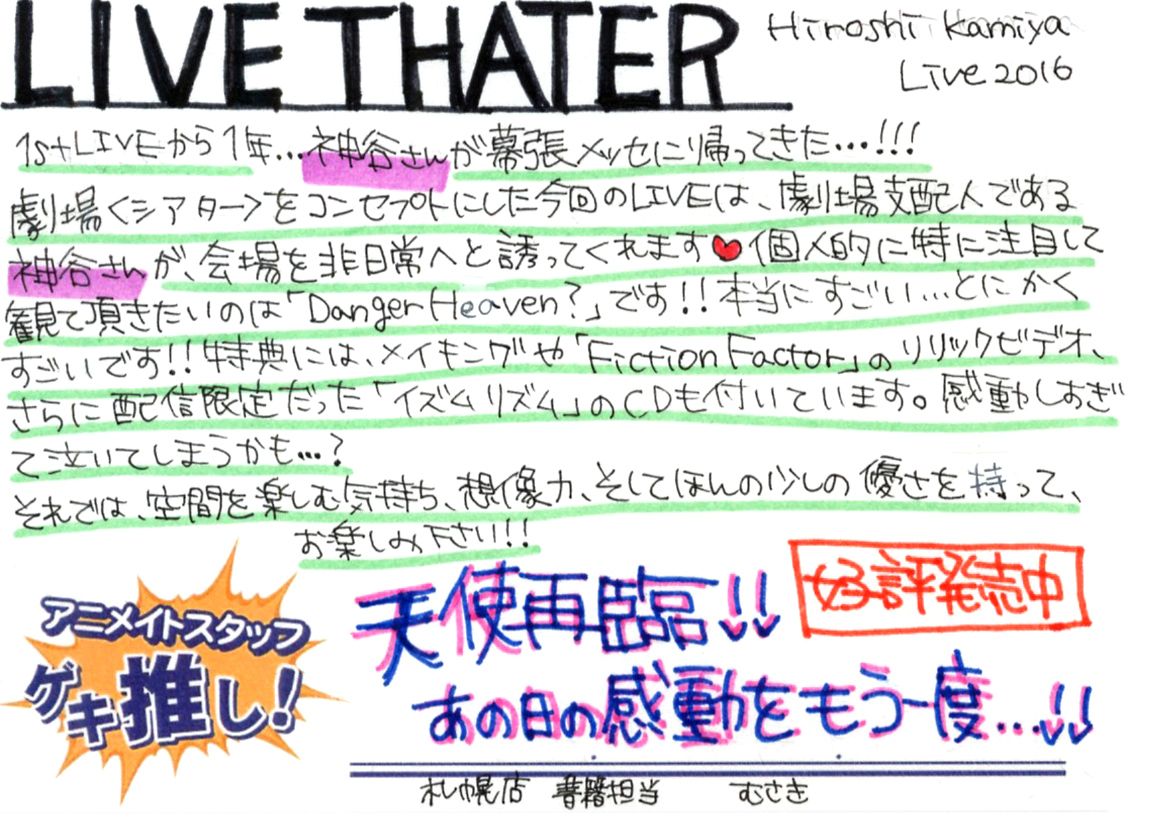 LIVE THATER
Hiroshi Kamiya
Live 2016
1st LIVEから1年...神谷さんが幕張メッセに帰ってきた...!!!
劇場<シアター>をコンセプトにした今回のLIVEは、劇場支配人である
神谷さんが、会場を非日常へと誘ってくれます♥個人的に特に注目して
観て頂きたいのは「Danger Heaven?」です!!本当にすごい...とにかく
すごいです!!特典には、メイキングや「Fiction Factor」のリリックビデオ、
さらに配信限定だった「イズムリズム」のCDも付いています。感動しすぎ
て泣いてしまうかも...?
それでは、空間を楽しむ気持ち、想像力、そしてほんの少しの優さを持って、
お楽しみ下さい!!
好評発売中
アニメイトスタッフ
ゲキ推し!
天使再臨!!
あの日の感動をもう一度...!!
札幌店 書籍担当 むさき